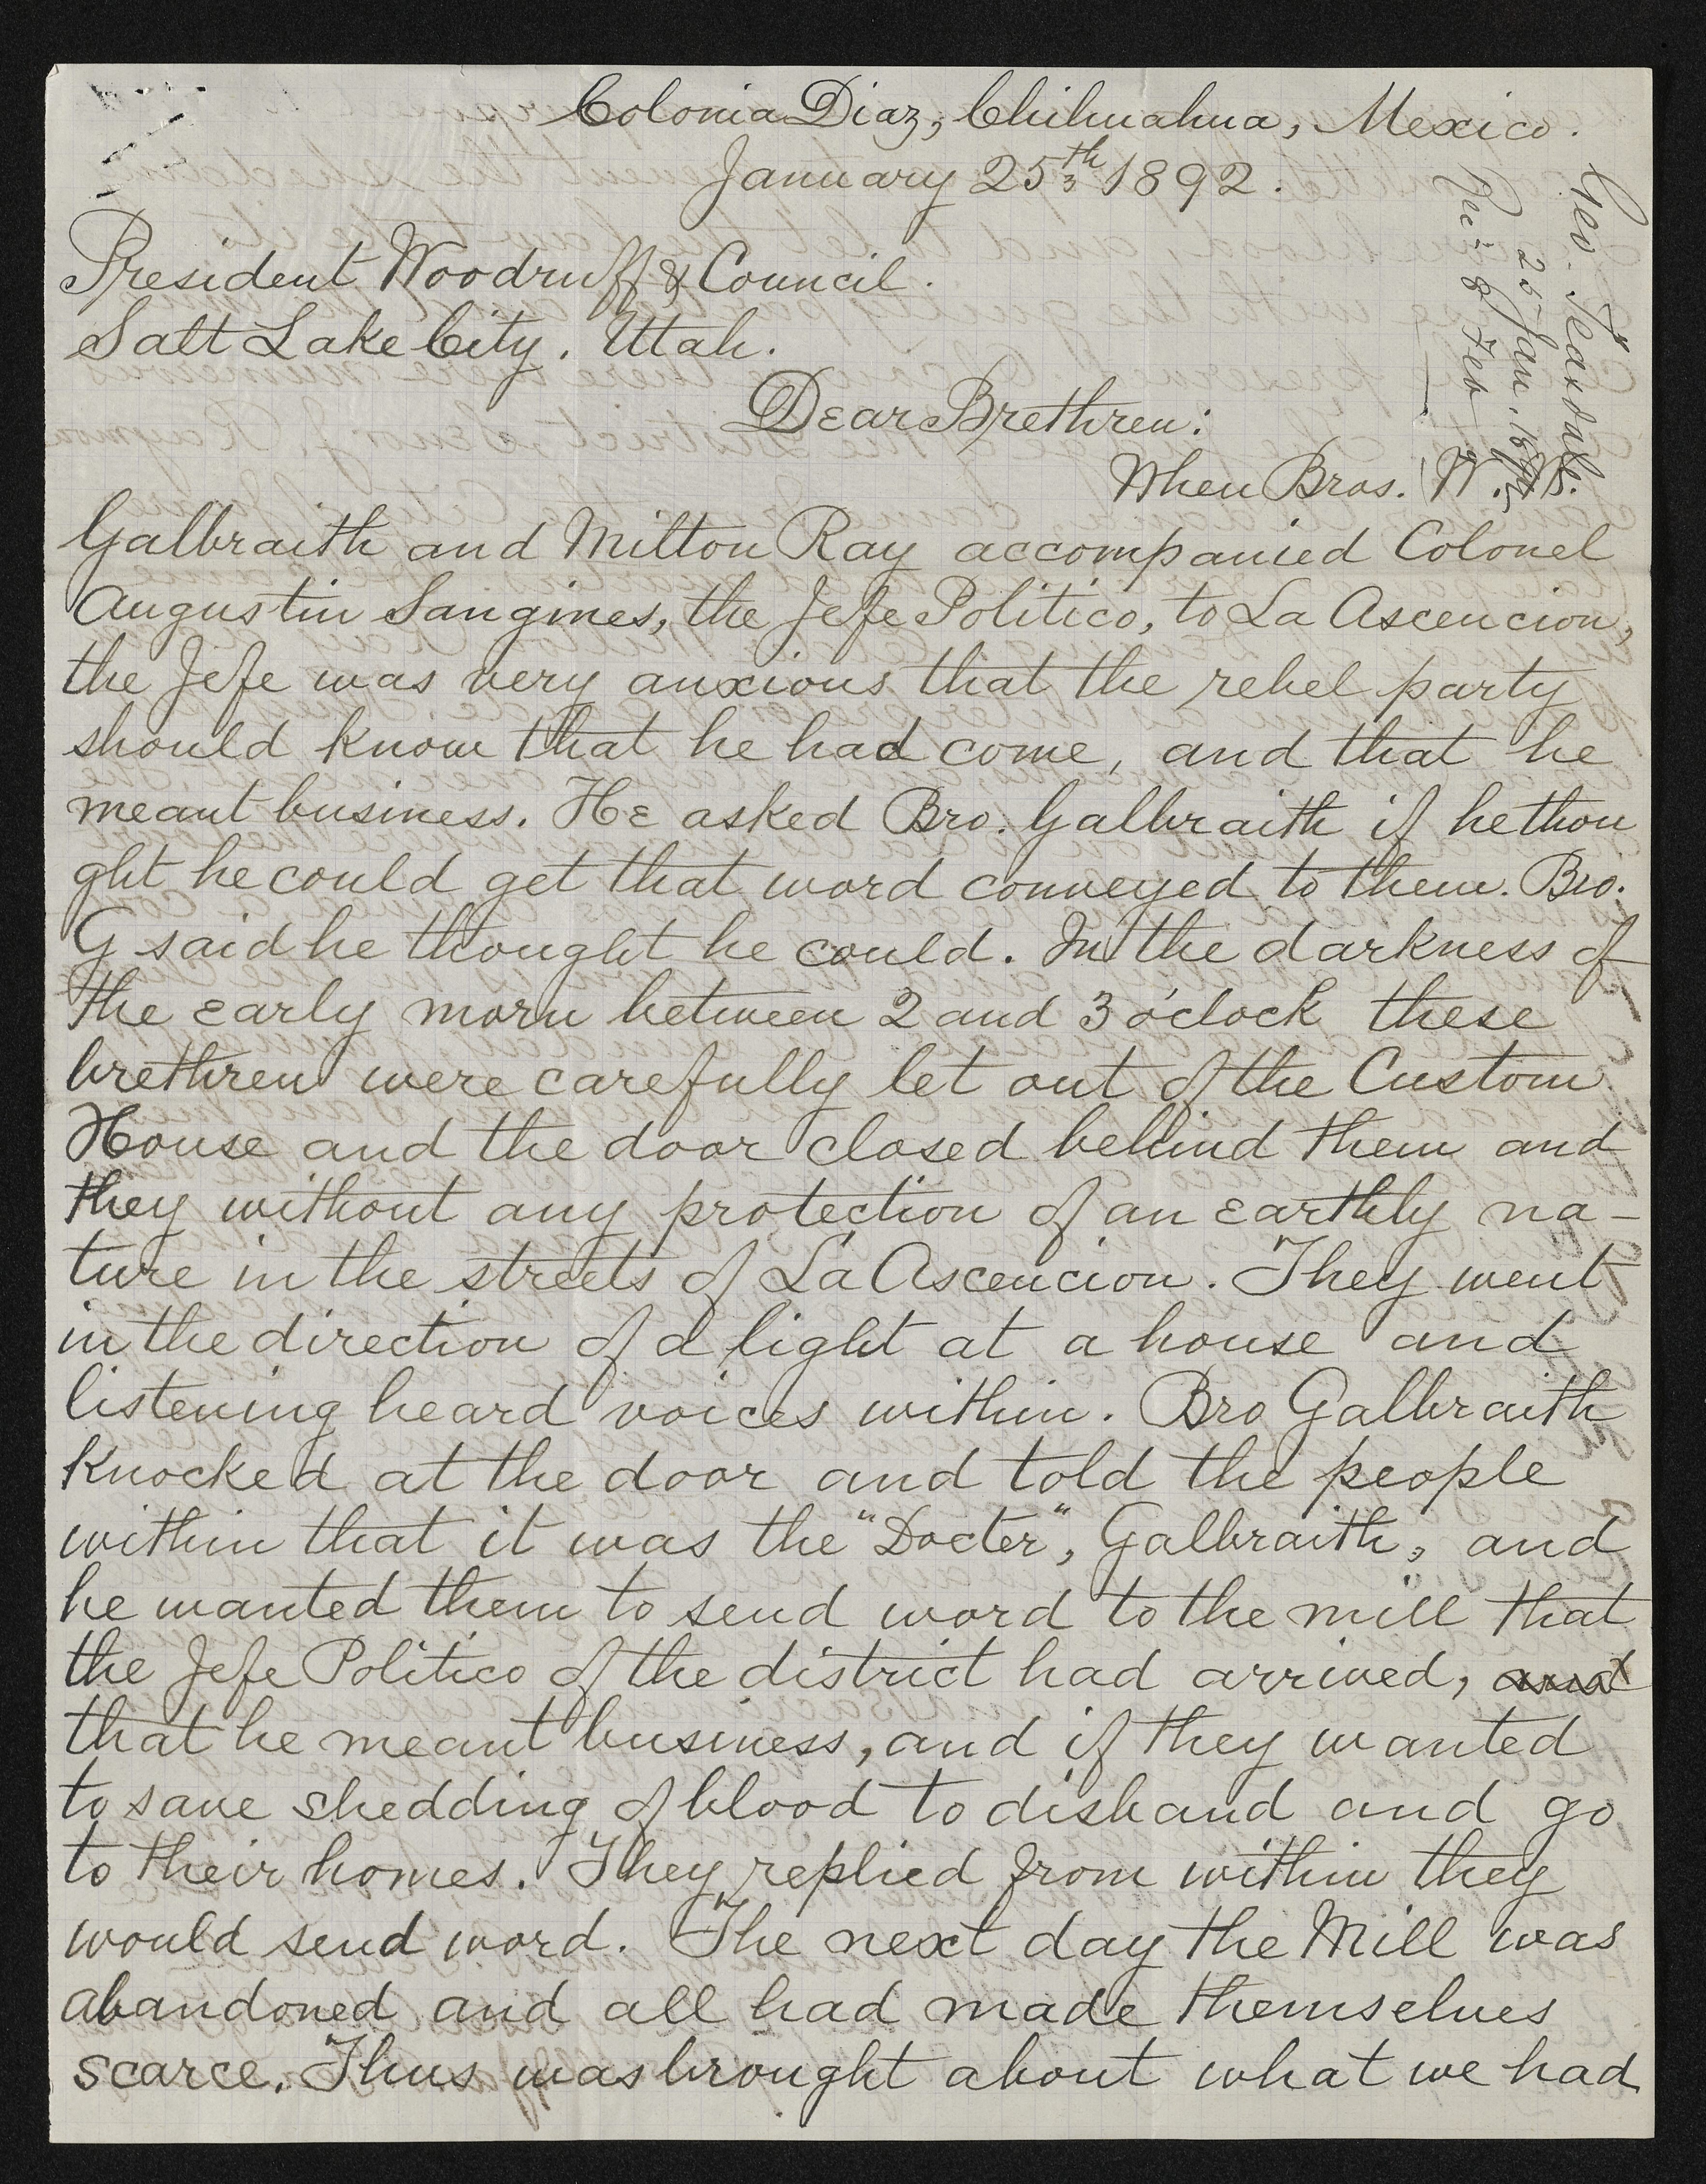 Colonia Diaz, Chihuahua, Mexico.
January 25th 1892.
Geo. Teasdale.
25 Jan. 1892
Rec'd 8 Feb
President Woodruff & Council.
Salt Lake City. Utah.
Dear Brethren:
When Bros. W. W.
Galbraith and Milton Ray accompanied Colonel
Augustin Sangines, the Jefe Politico, to La Ascencion,
the Jefe was very anxious that the rebel party
should know that he had come, and that he
meant business. He asked Bro. Galbraith if he thou
ght he could get that word conveyed to them. Bro.
G said he thought he could. In the darkness of
the early morn between 2 and 3 o'clock these
brethren were carefully let out of the Custom
House and the door closed behind them and
they without any protection of an earthly na-
ture in the streets of La Ascencion. They went
in the direction of a light at a house and
listening heard voices within. Bro Galbraith
knocked at the door and told the people
within that it was the "Docter", Galbraith, and
he wanted them to send word to the mill that
the Jefe Politico of the district had arrived, and
that he meant business, and if they wanted
to save shedding of blood to disband and go
to their homes. They replied from within they
would send word. The next day the Mill was
abandoned and all had made themselves
scarce. Thus was brought about what we had